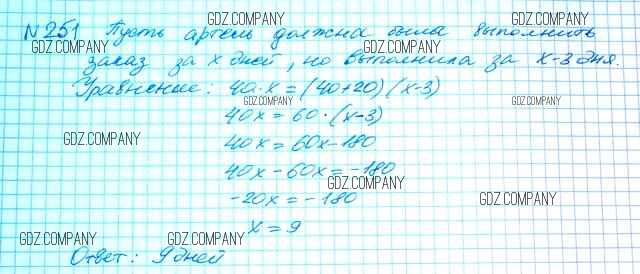 № 251 Пусть артель должна была выполнить
заказ за x дней, но выполнила за x-3 дня.
Уравнение: 40·x = (40+20)(x-3)
40x = 60·(x-3)
40x = 60x-180
40x - 60x = -180
-20x = -180
x = 9
Ответ: 9 дней
GDZ.COMPANY
GDZ.COMPANY
GDZ.COMPANY
GDZ.COMPANY
GDZ.COMPANY
GDZ.COMPANY
GDZ.COMPANY
GDZ.COMPANY
GDZ.COMPANY
GDZ.COMPANY
GDZ.COMPANY